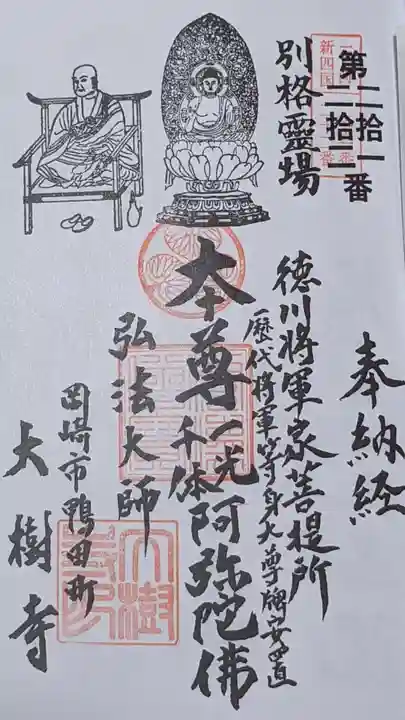 奉納経
第二拾一番
二拾二番
別格霊場
徳川将軍家菩提所
歴代将軍等身大尊牌安置
本尊
一光千体
阿弥陀佛
弘法大師
岡崎市鴨田町
大樹寺